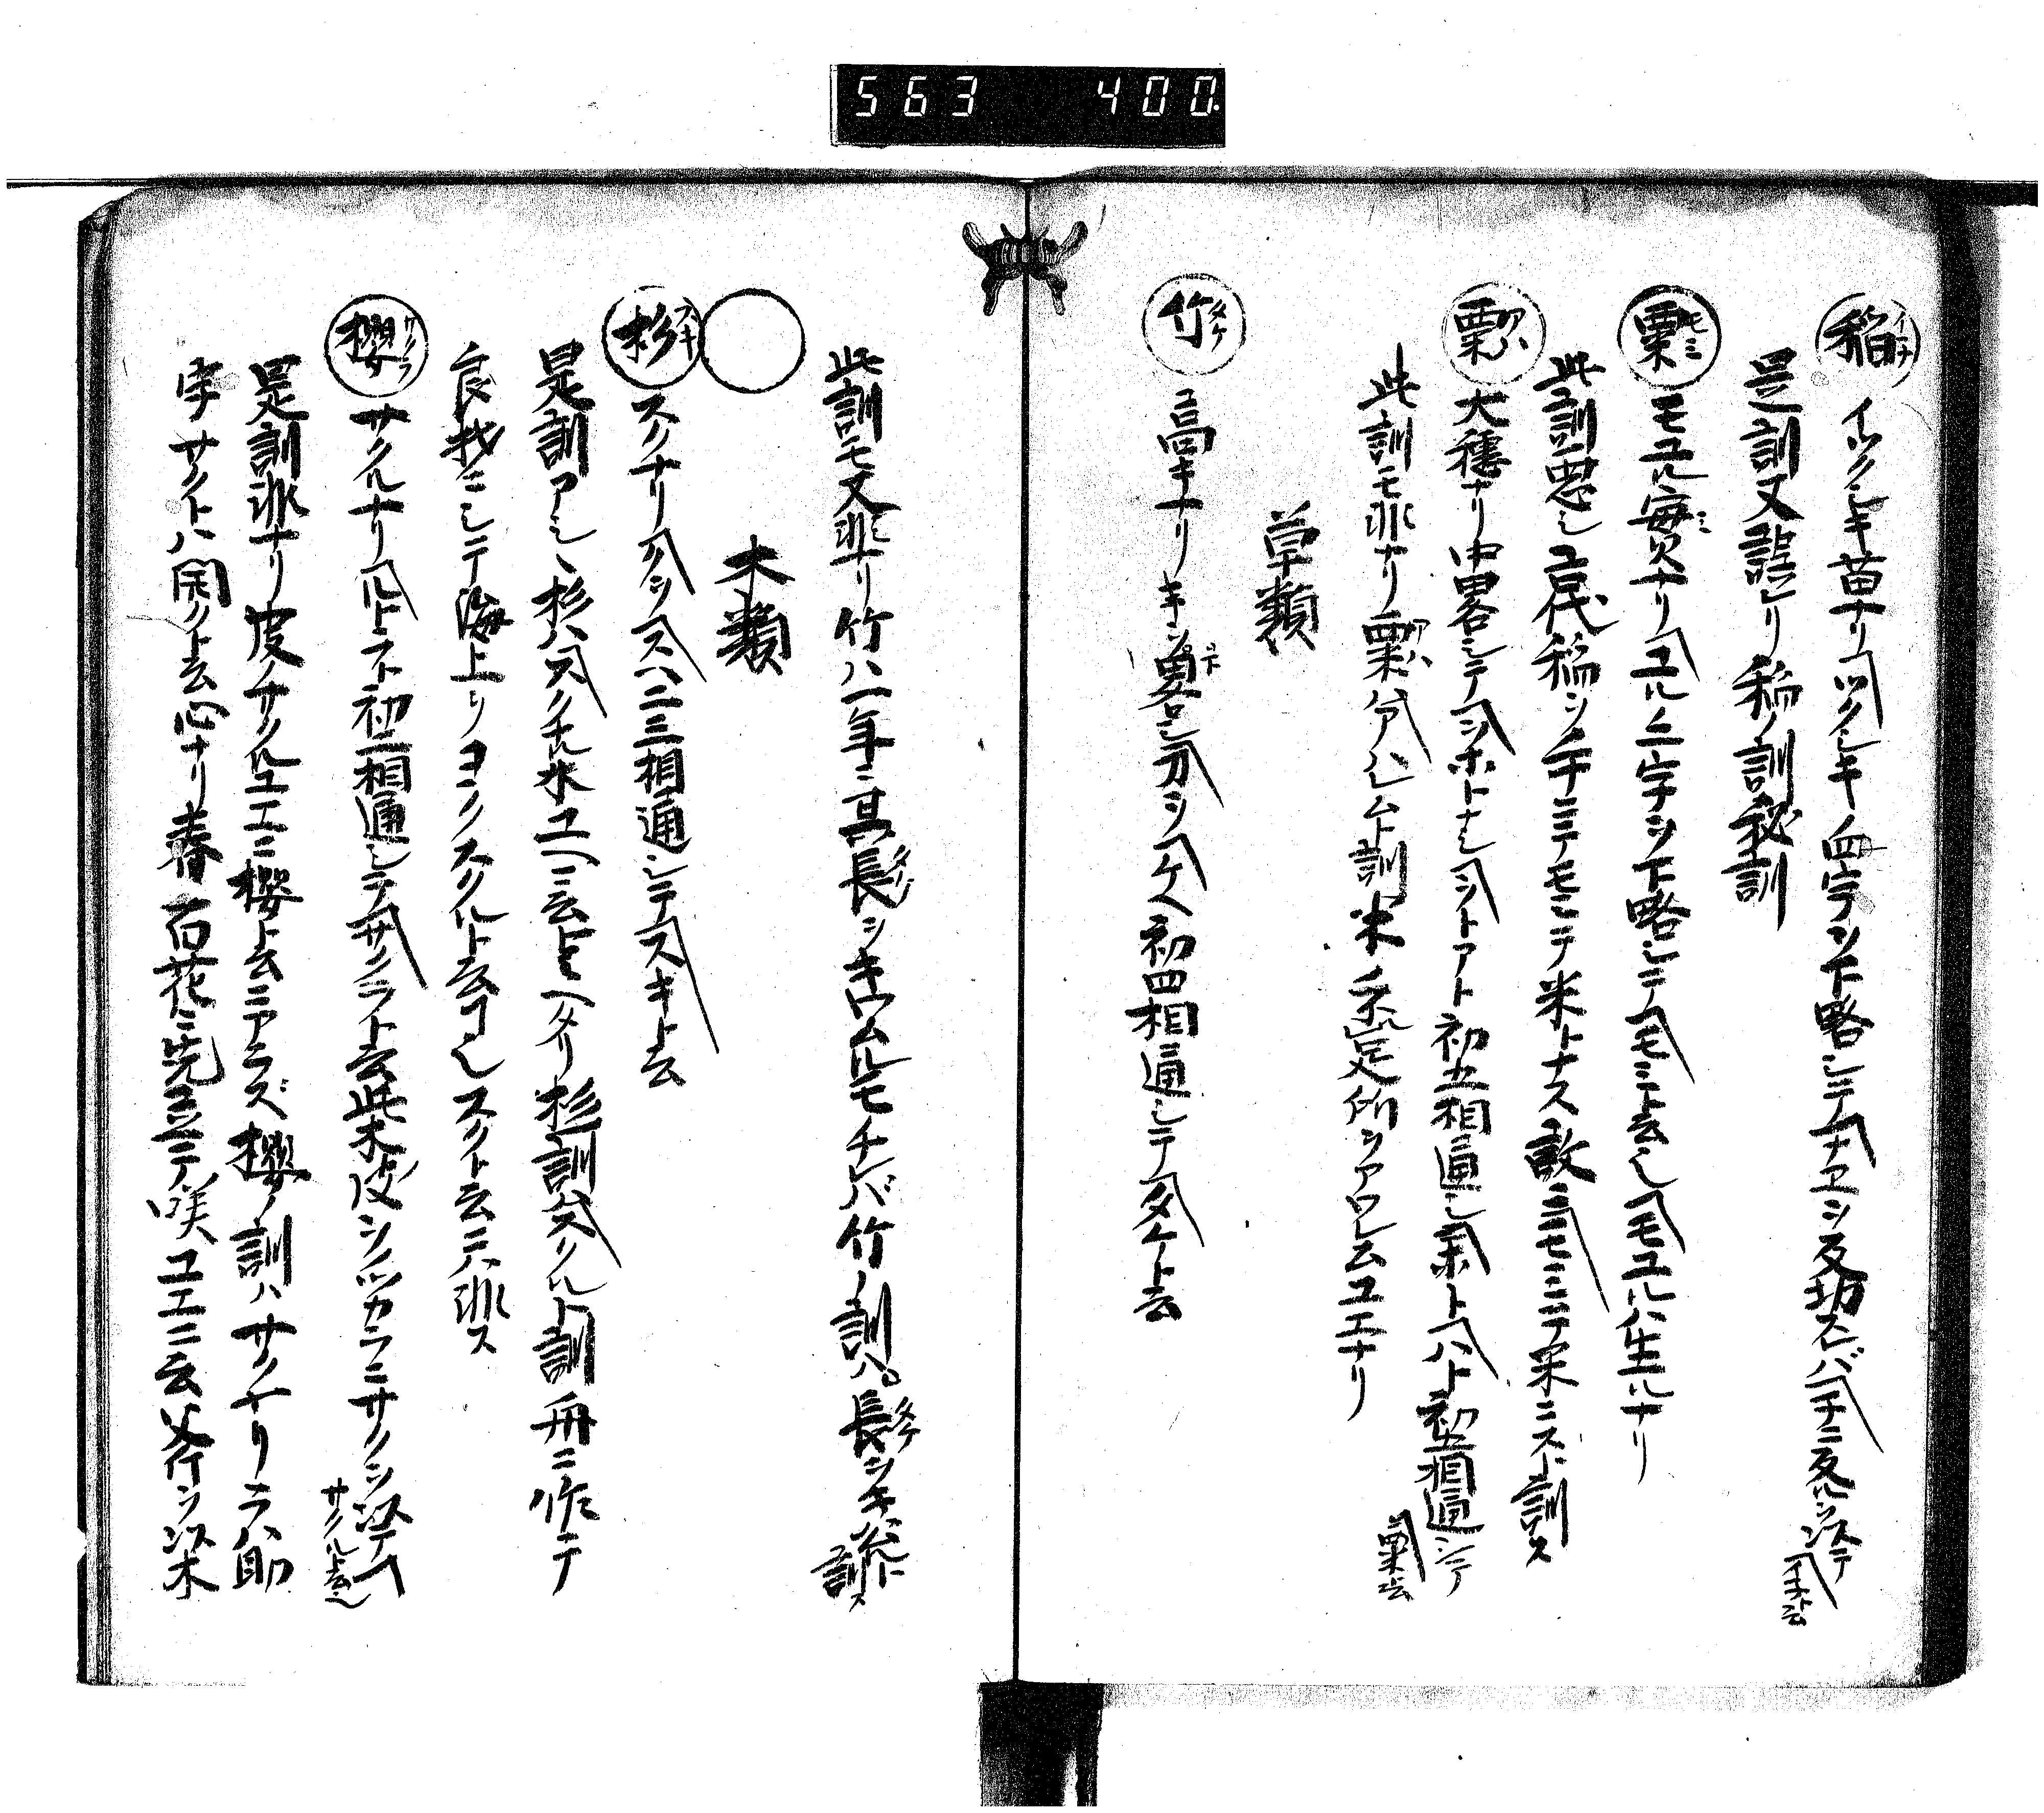 563 400.
稲イナ イツクシキ苗ナリツクシキノ四字ヲ下略シテナエヲ反切スレバ子ニ反ルヲ以テイ子ト云
是訓又誤レリ稲ノ訓秘訓
粟モミ モユル実ミナリユルノ二字ヲ下略シテモミト云也モユルハ生ルナリ
此訓悪シ古代稲ヲ手ニテモミテ米トナス故ニモミニテ米ニスト訓ス
粟アハ 大穂ナリ中畧シテヲホトナシヲトアト初五相通シホトハト初五相通シテ粟ト云
此訓モ非ナリ粟アハハアハレムト訓米ノ不足所ヲアワレムユエナリ
草類
竹タケ 高キナリキヲ畧シカヲケヘ初四相通シテタケト云
此訓モ又非ナリ竹ハ一年ニ其長タケヲキワムルモノナレバ竹ノ訓ハ長タケヲキハムルト訓ス
木類
杉スキ スクナリクヲスハ二三相通シテスキト云
是訓アシヽ杉ハスクナル木ユヘニ云ト云ヘタリ杉訓ハスクルト訓舟ニ作テ
良材ニシテ海上ヲヨクスクルト云コヽロ也スクト云ニハ非ス
櫻サクラ サクルナリルトラト初二相通シテサクラト云此木皮ヲツカラニサクヲ以テサクルト云也
是訓非ナリ皮ノサクルユエニ櫻ト云ニアラズ櫻ノ訓ハサクナリラハ助
字サクトハ開クト云心ナリ春百花ニ先立テ咲ユエニ云